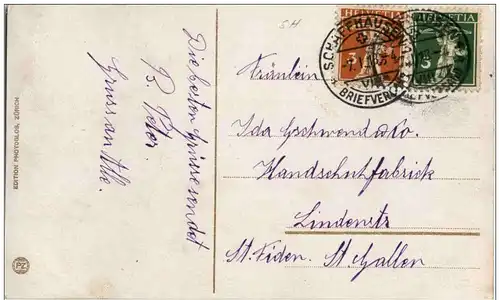 S.H
HELVETIA
HELVETIA
5
SCHAFFHAUSEN
BRIEFVERS
Fräulein
Ida Gschwend & Co.
Handschuhfabrick
Lindenstr
St. Fiden. St. Gallen
Die besten Grüsse sendet
P. Peter.
Gruss an Alle.
EDITION PHOTOGLOB, ZÜRICH
PZ